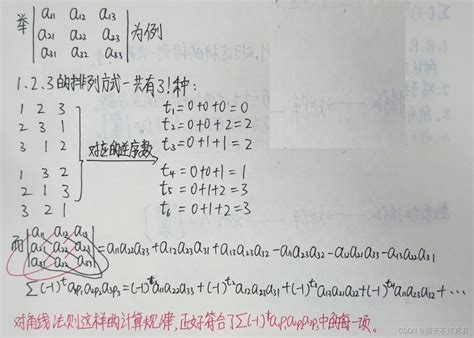 a₁₁ a₁₂ a₁₃
举 a₂₁ a₂₂ a₂₃ 为例
a₃₁ a₃₂ a₃₃
1.2.3的排列方式一共有3!种:
1 2 3 t₁=0+0+0=0
2 3 1 t₂=0+0+2=2
3 1 2 对应的逆序数 t₃=0+1+1=2
1 3 2 t₄=0+0+1=1
2 1 3 t₅=0+1+2=3
3 2 1 t₆=0+1+2=3
a₁₁ a₁₂ a₁₃
而 a₂₁ a₂₂ a₂₃ =a₁₁a₂₂a₃₃+a₁₂a₂₃a₃₁+a₁₃a₂₁a₃₂-a₁₁a₂₃a₃₂-a₁₂a₂₁a₃₃-a₁₃a₂₂a₃₁
a₃₁ a₃₂ a₃₃
∑(-1)ᵗaₚ₁aₚ₂aₚ₃=(-1)ᵗ¹a₁₁a₂₂a₃₃+(-1)ᵗ²a₁₂a₂₃a₃₁+(-1)ᵗ³a₁₃a₂₁a₃₂+(-1)ᵗ⁴a₁₁a₂₃a₃₂+⋯
对角线法则这样的计算规律,正好符合了∑(-1)ᵗaₚ₁aₚ₂aₚ₃中的每一项。